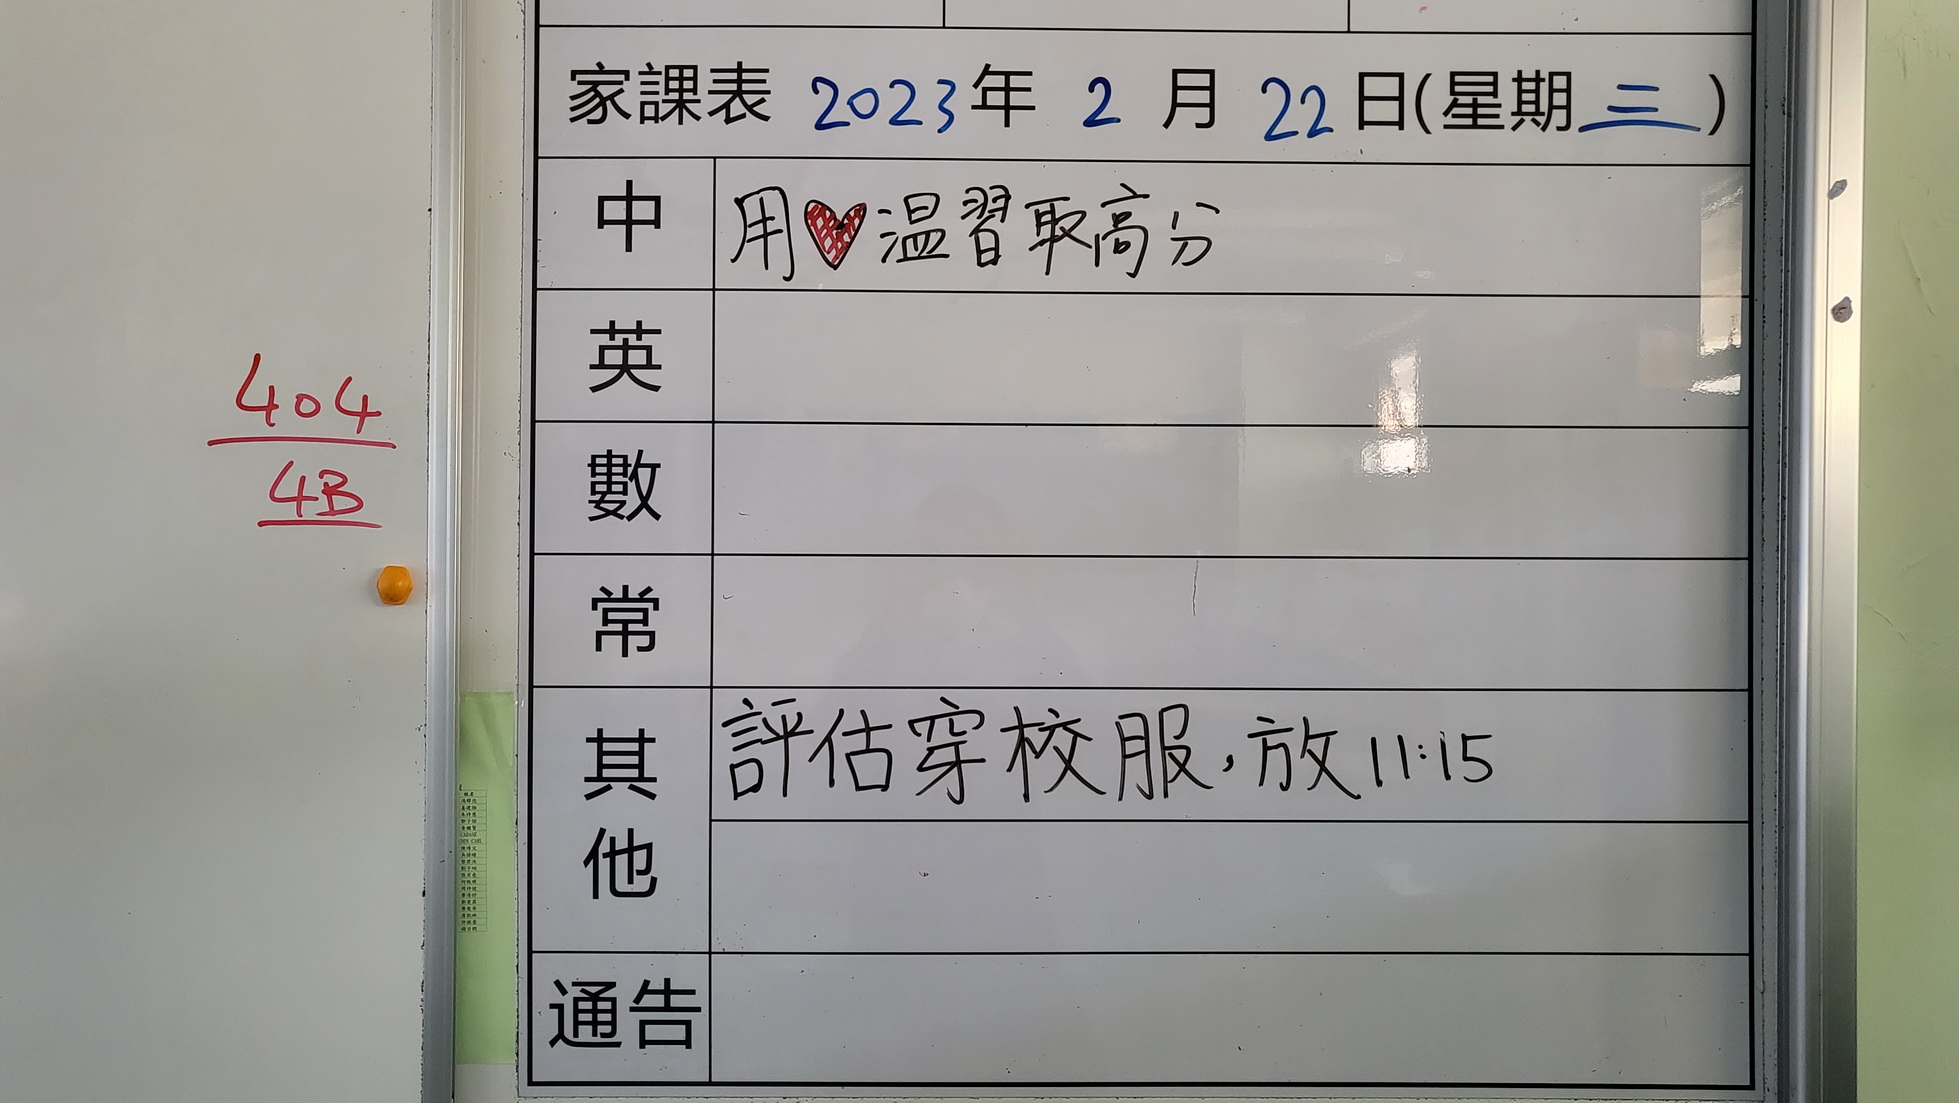 家課表 2023年 2 月 22 日(星期三)
中 用♥温習取高分
英
數
常
其他 評估穿校服,放11:15
通告
404
4B